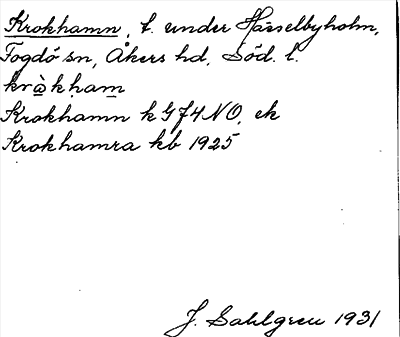 Krokhamn, t. under Hässelbyholm,
Fogdö sn, Åkers hd, Söd. l.
kråkham
Krokhamn k GJ4NO, ek
Krokhamra kb 1925
J. Sahlgren 1931